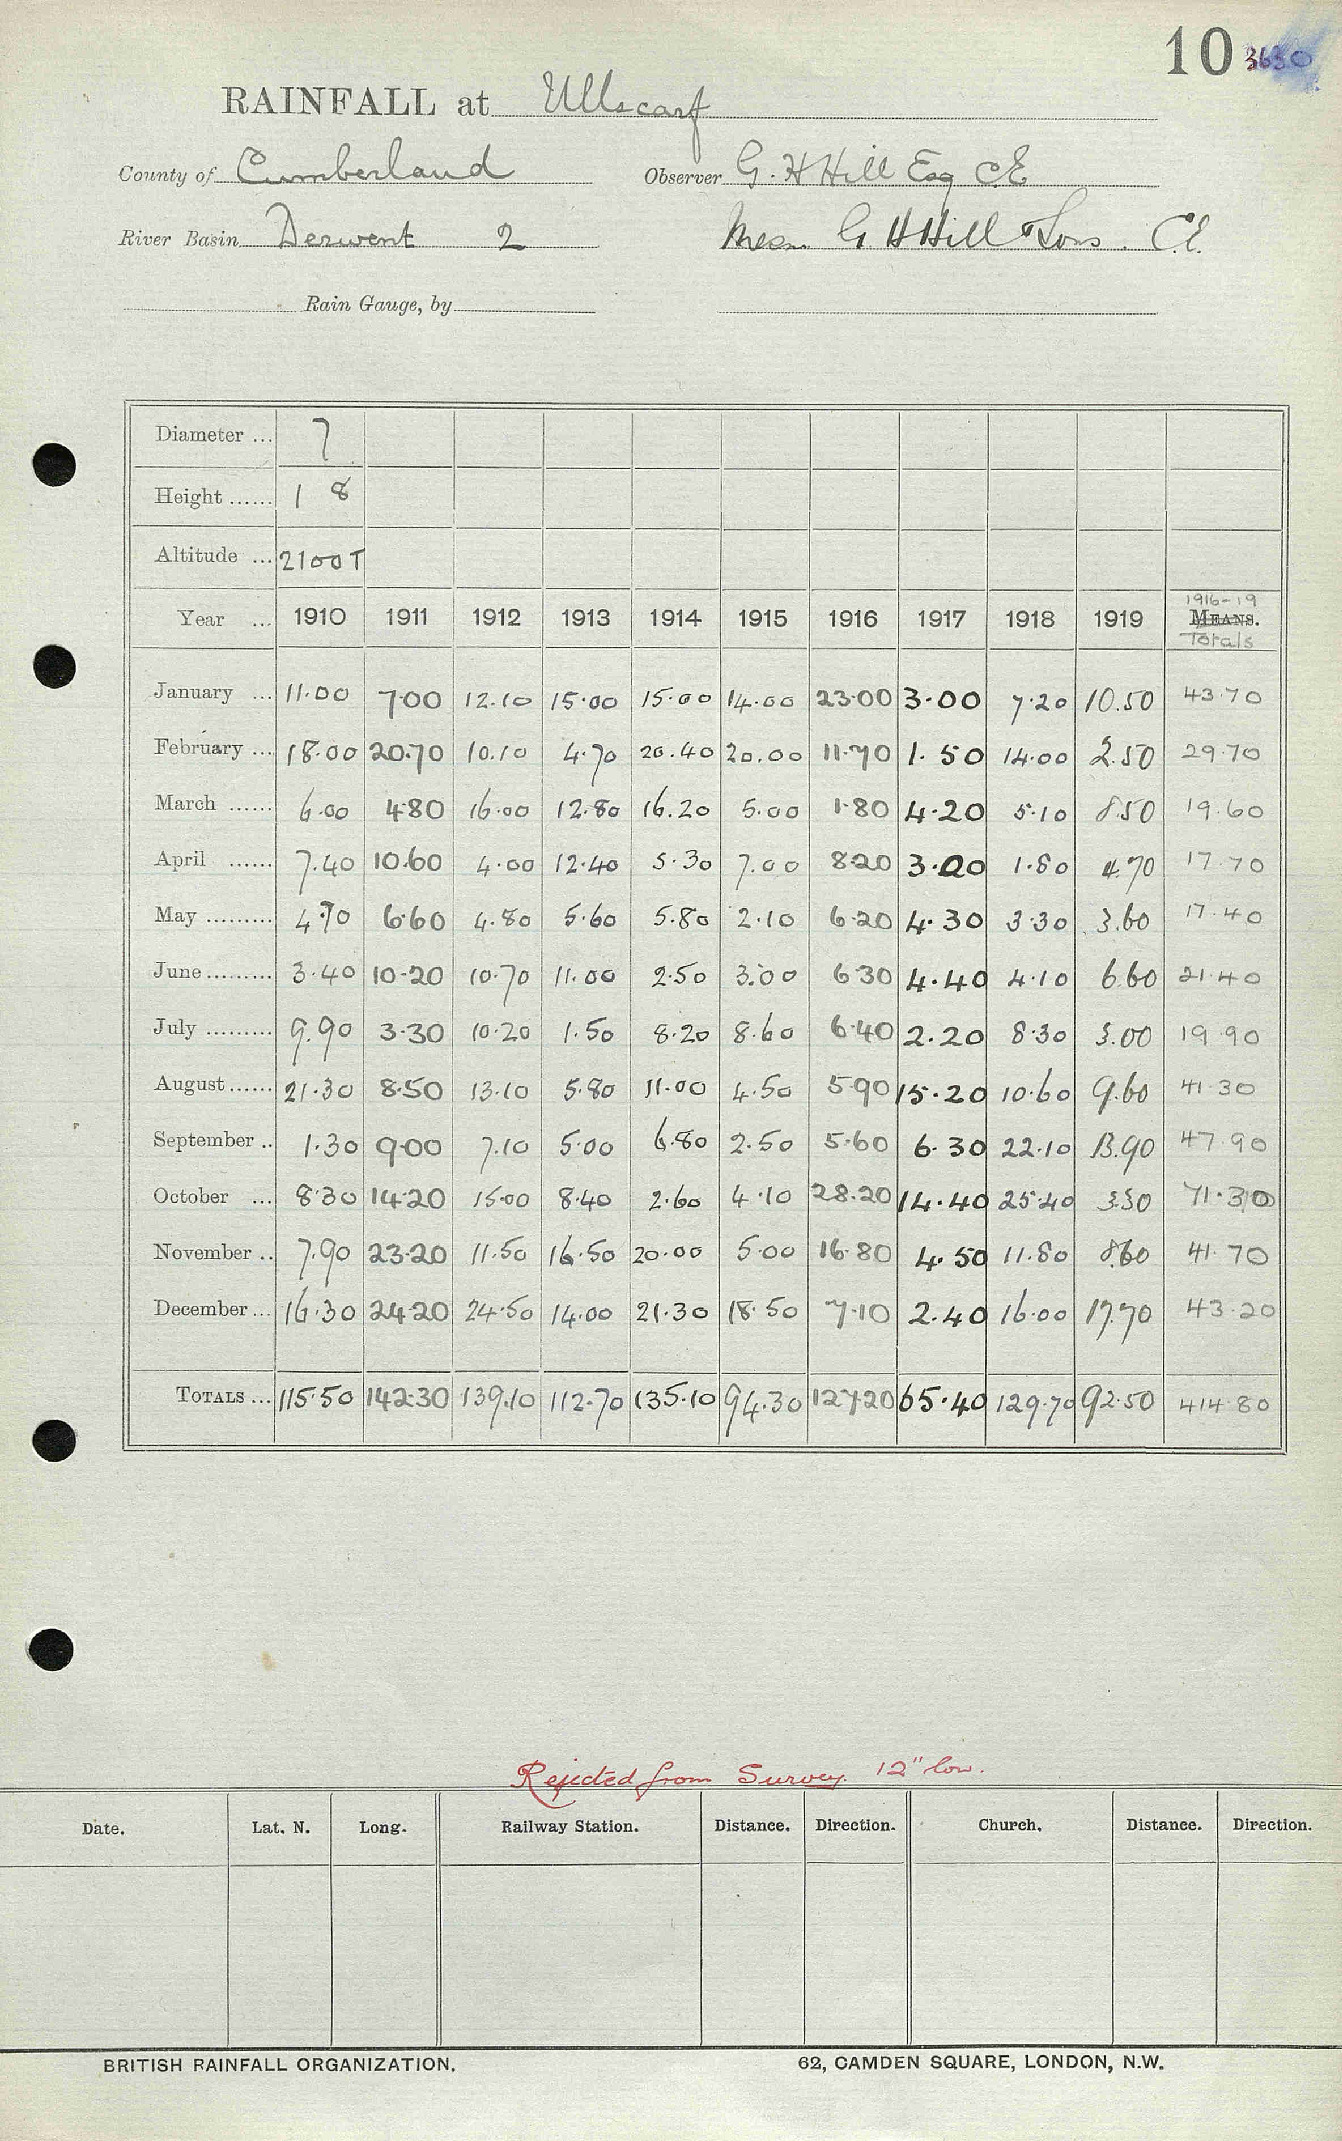 10 3630
RAINFALL at Ullscarf
County of Cumberland Observer G. H Hill Esq C.E
River Basin Derwent 2 Messrs G H Hill & Sons. C.E.
Rain Gauge, by
Diameter ... 7
Height ...... 1 8
Altitude ... 2100 T
1916-19
Year ... 1910 1911 1912 1913 1914 1915 1916 1917 1918 1919 MEANS.
Totals
January ... 11.00 7.00 12.10 15.00 15.00 14.00 23.00 3.00 7.20 10.50 43.70
February ... 18.00 20.70 10.10 4.70 20.40 20.00 11.70 1.50 14.00 2.50 29.70
March ...... 6.00 4.80 16.00 12.80 16.20 5.00 1.80 4.20 5.10 8.50 19.60
April ...... 7.40 10.60 4.00 12.40 5.30 7.00 8.20 3.00 1.80 4.70 17.70
May ......... 4.70 6.60 4.80 5.60 5.80 2.10 6.20 4.30 3.30 3.60 17.40
June ......... 3.40 10.20 10.70 11.00 2.50 3.00 6.30 4.40 4.10 6.60 21.40
July ......... 9.90 3.30 10.20 1.50 8.20 8.60 6.40 2.20 8.30 3.00 19.90
August ...... 21.30 8.50 13.10 5.80 11.00 4.50 5.90 15.20 10.60 9.60 41.30
September .. 1.30 9.00 7.10 5.00 6.80 2.50 5.60 6.30 22.10 13.90 47.90
October ... 8.30 14.20 15.00 8.40 2.60 4.10 28.20 14.40 25.40 3.30 71.30
November .. 7.90 23.20 11.50 16.50 20.00 5.00 16.80 4.50 11.80 8.60 41.70
December ... 16.30 24.20 24.50 14.00 21.30 18.50 7.10 2.40 16.00 17.70 43.20
TOTALS ... 115.50 142.30 139.10 112.70 135.10 94.30 127.20 65.40 129.70 92.50 414.80
Rejected from Survey. 12" low.
Date. Lat. N. Long. Railway Station. Distance. Direction. Church. Distance. Direction.
BRITISH RAINFALL ORGANIZATION. 62, CAMDEN SQUARE, LONDON, N.W.